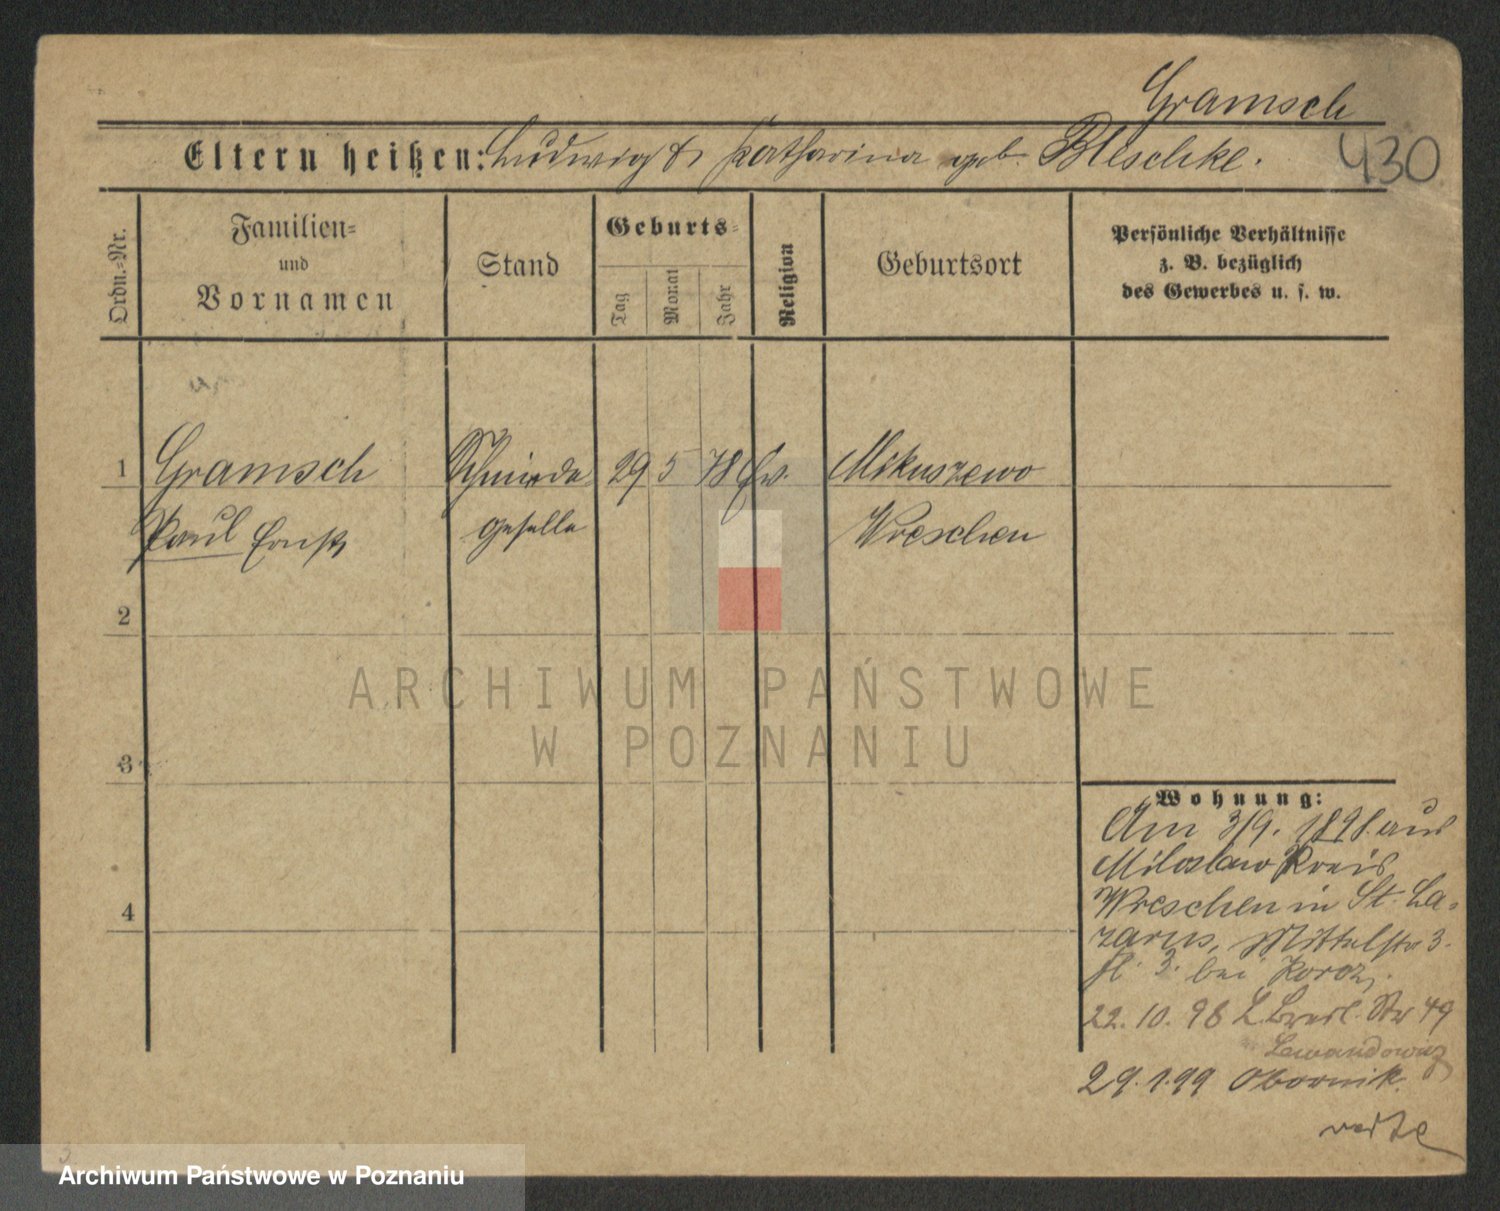 Gramsch
430
Eltern heißen: Ludwig & Katharina geb. Bleschke.
Ordn.-Nr.
Familien- und Vornamen
Stand
Geburts-
Tag
Monat
Jahr
Religion
Geburtsort
Persönliche Verhältnisse
z. B. bezüglich
des Gewerbes u. s. w.
1 Gramsch Schmiede 29 5 78 Ev. Mikuszewo
Paul Ernst geselle Wreschen
2
3
4
ARCHIWUM PAŃSTWOWE
W POZNANIU
Wohnung:
Am 3/9. 1898. aus
Miloslaw Kreis
Wreschen in St. La-
zarus, Mittelstr 3.
bei
22. 10. 98 Bresl. Str 49
Lewandowicz
29. 1. 99 Obornik.
verte
3
Archiwum Państwowe w Poznaniu